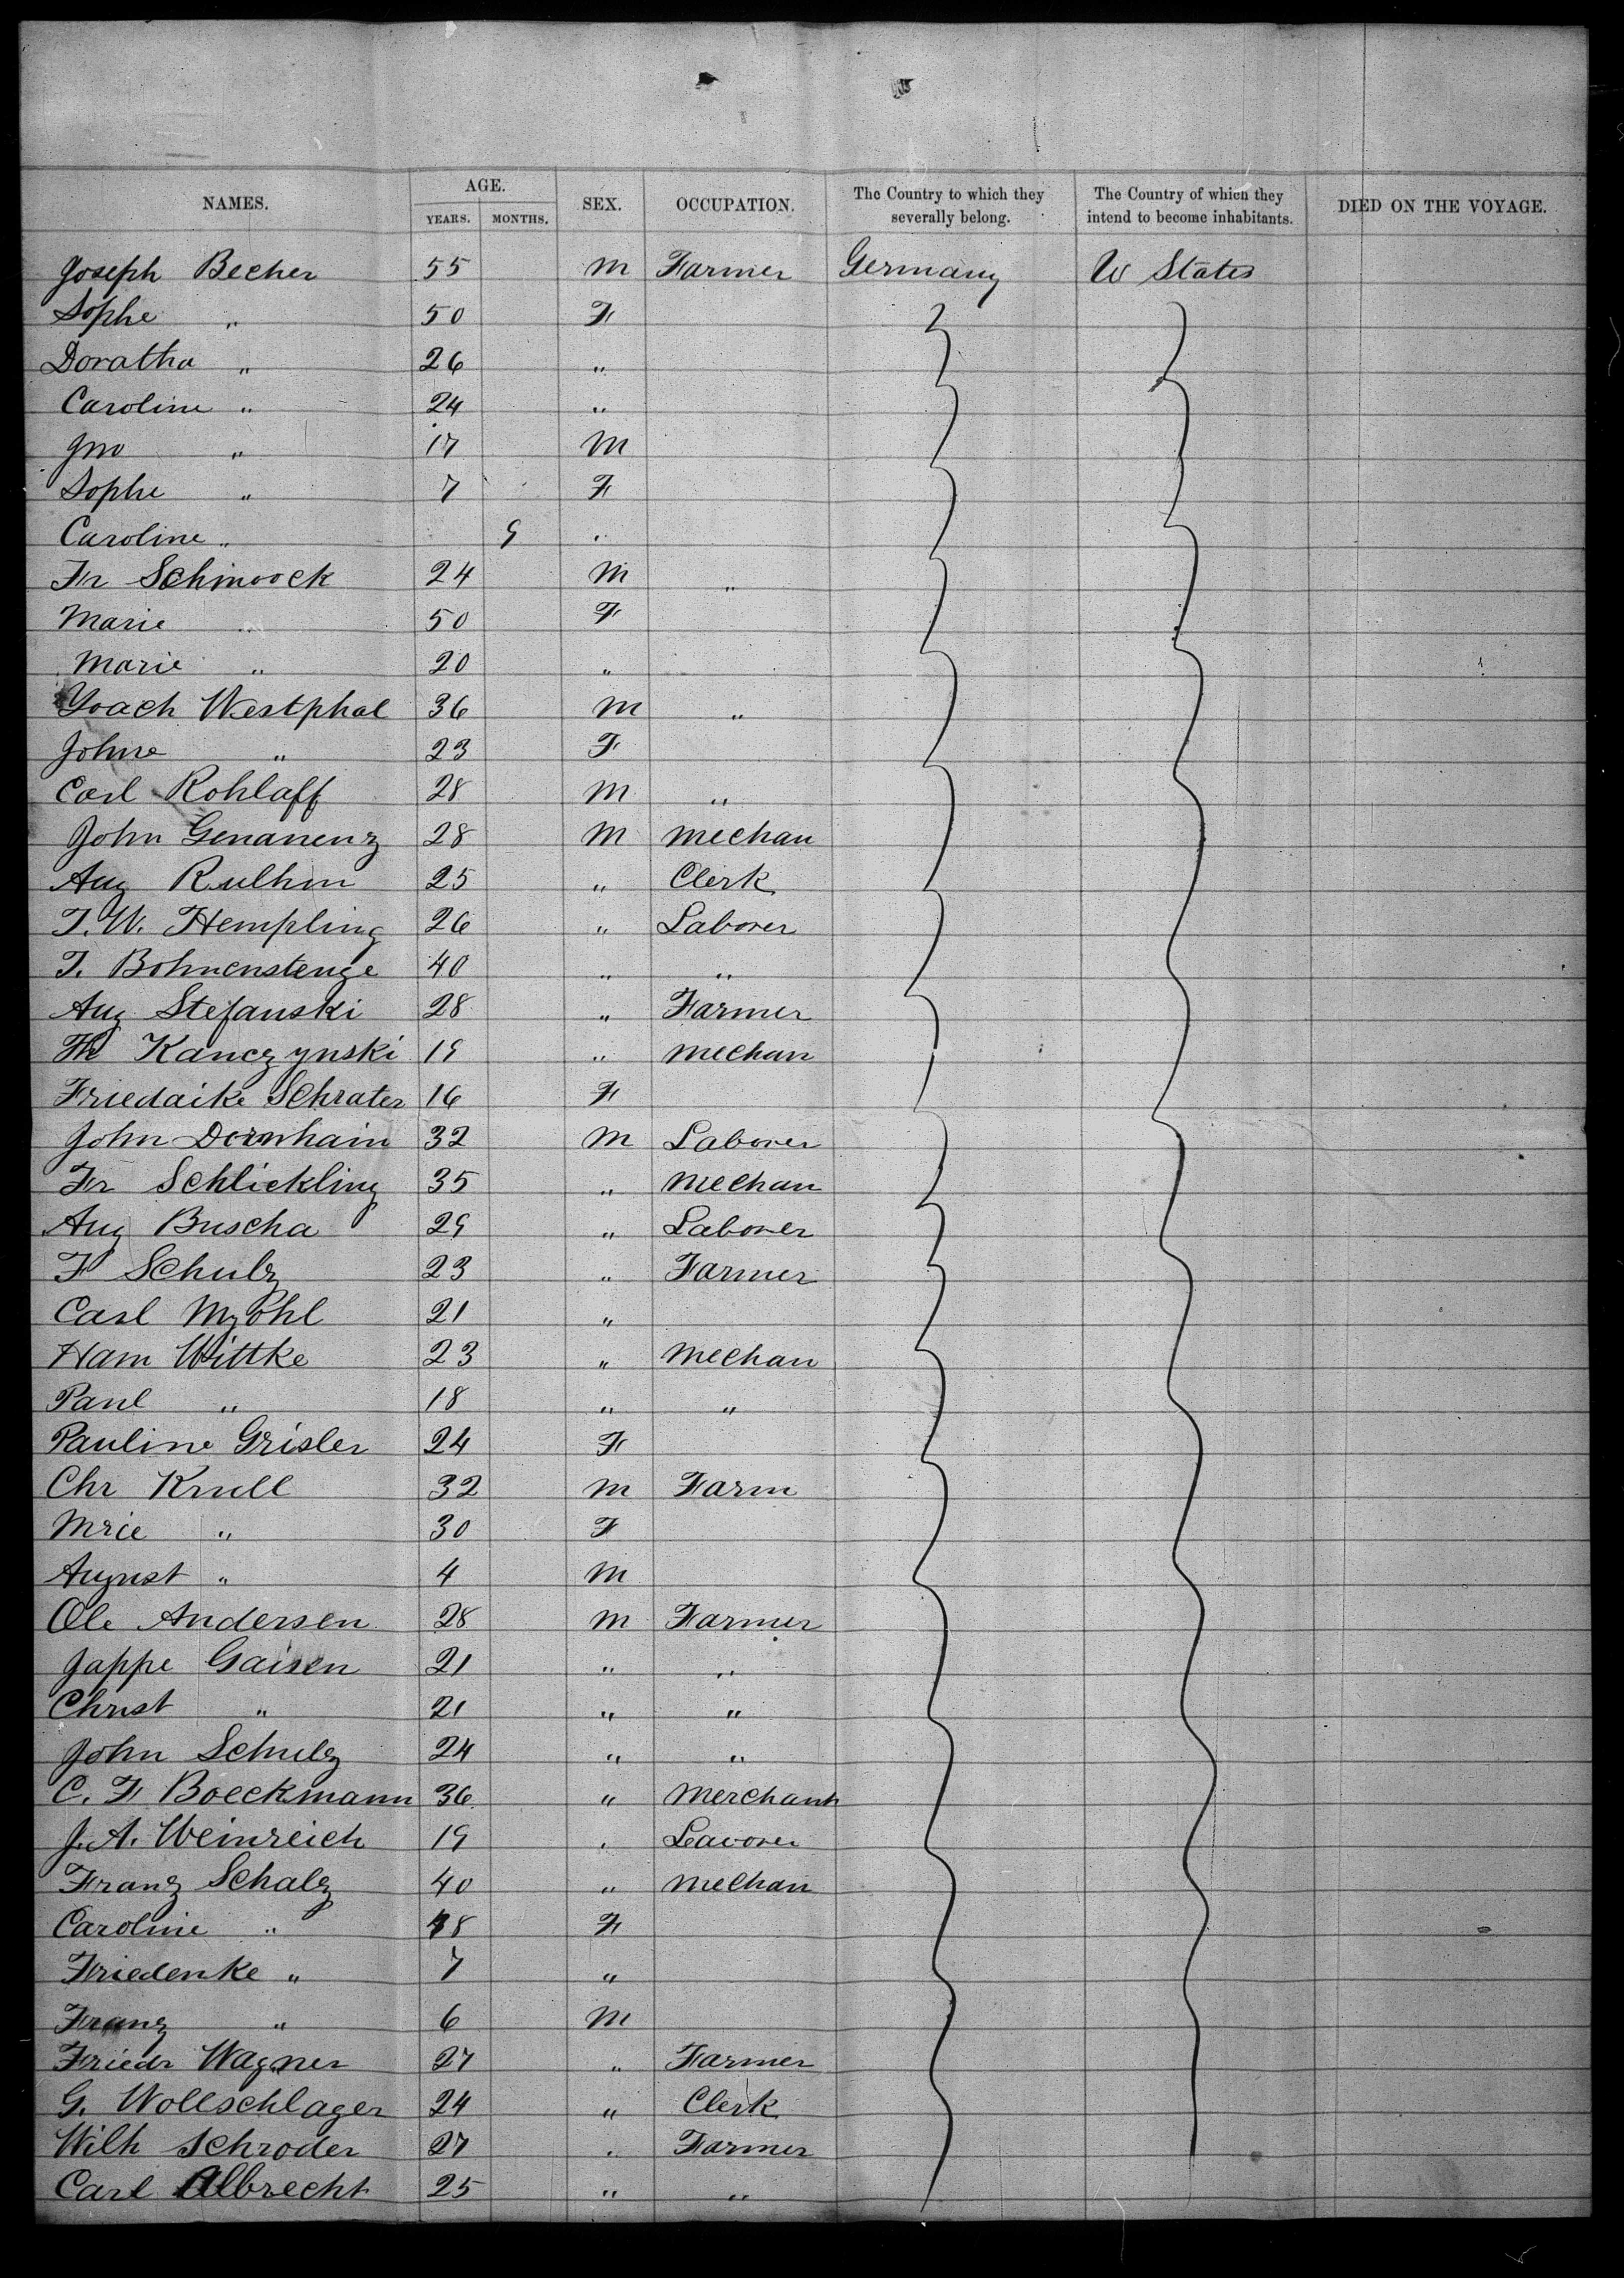 NAMES. AGE. SEX. OCCUPATION. The Country to which they severally belong. The Country of which they intend to become inhabitants. DIED ON THE VOYAGE.
YEARS. MONTHS.
Joseph Becher 55 M Farmer Germany U States
Sophe " 50 F
Doratha " 26 "
Caroline " 24 "
Jno " 17 M
Sophe " 7 F
Caroline " 9 "
Fr Schmoock 24 M "
Marie " 50 F
Marie " 20 "
Joach Westphal 36 M "
Johne " 23 F
Carl Rohlaff 28 M "
John Genanenz 28 M Mechan
Aug Rulhm 25 " Clerk
T. W. Hempling 26 " Laborer
T. Bohnenstenge 40 " "
Aug Stefanski 28 " Farmer
Th Kanczynski 19 " Mechan
Friedaike Schrater 16 F
John Dornhain 32 M Laborer
Fr Schlickling 35 " Mechan
Aug Buscha 29 " Laborer
F Schulz 23 " Farmer
Carl 21 "
Ham Wittke 23 " Mechan
Paul " 18 " "
Pauline Grisler 24 F
Chr Krull 32 M Farm
Mrie " 30 F
August " 4 M
Ole Andersen 28 M Farmer
Jappe Gaisen 21 " "
Christ " 21 " "
John Schulz 24 " "
C. F Boeckmann 36 " Merchant
J. A. Weinreich 19 " Leavorer
Franz Schalz 40 " Mechan
Caroline " 38 F
Friedenke " 7 "
Franz " 6 M
Friedr Wagner 27 " Farmer
G. Wollschlager 24 " Clerk
Wilh Schroder 27 " Farmer
Carl Albrecht 25 " "